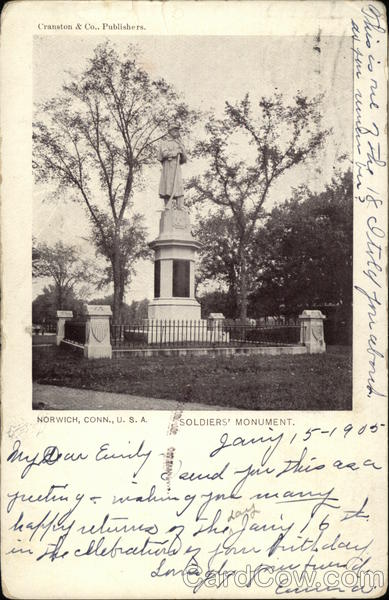 Cranston & Co., Publishers.
This is one of the 18 I told you about
as you remember
NORWICH, CONN., U. S. A.
SOLDIERS' MONUMENT.
Jan'y 15-1905
My Dear Emily
I send you this as a
greeting & wishing you many
happy returns of the day Jan'y 16th
in the celebration of your birthday
Lovingly your friend
CardCow.com